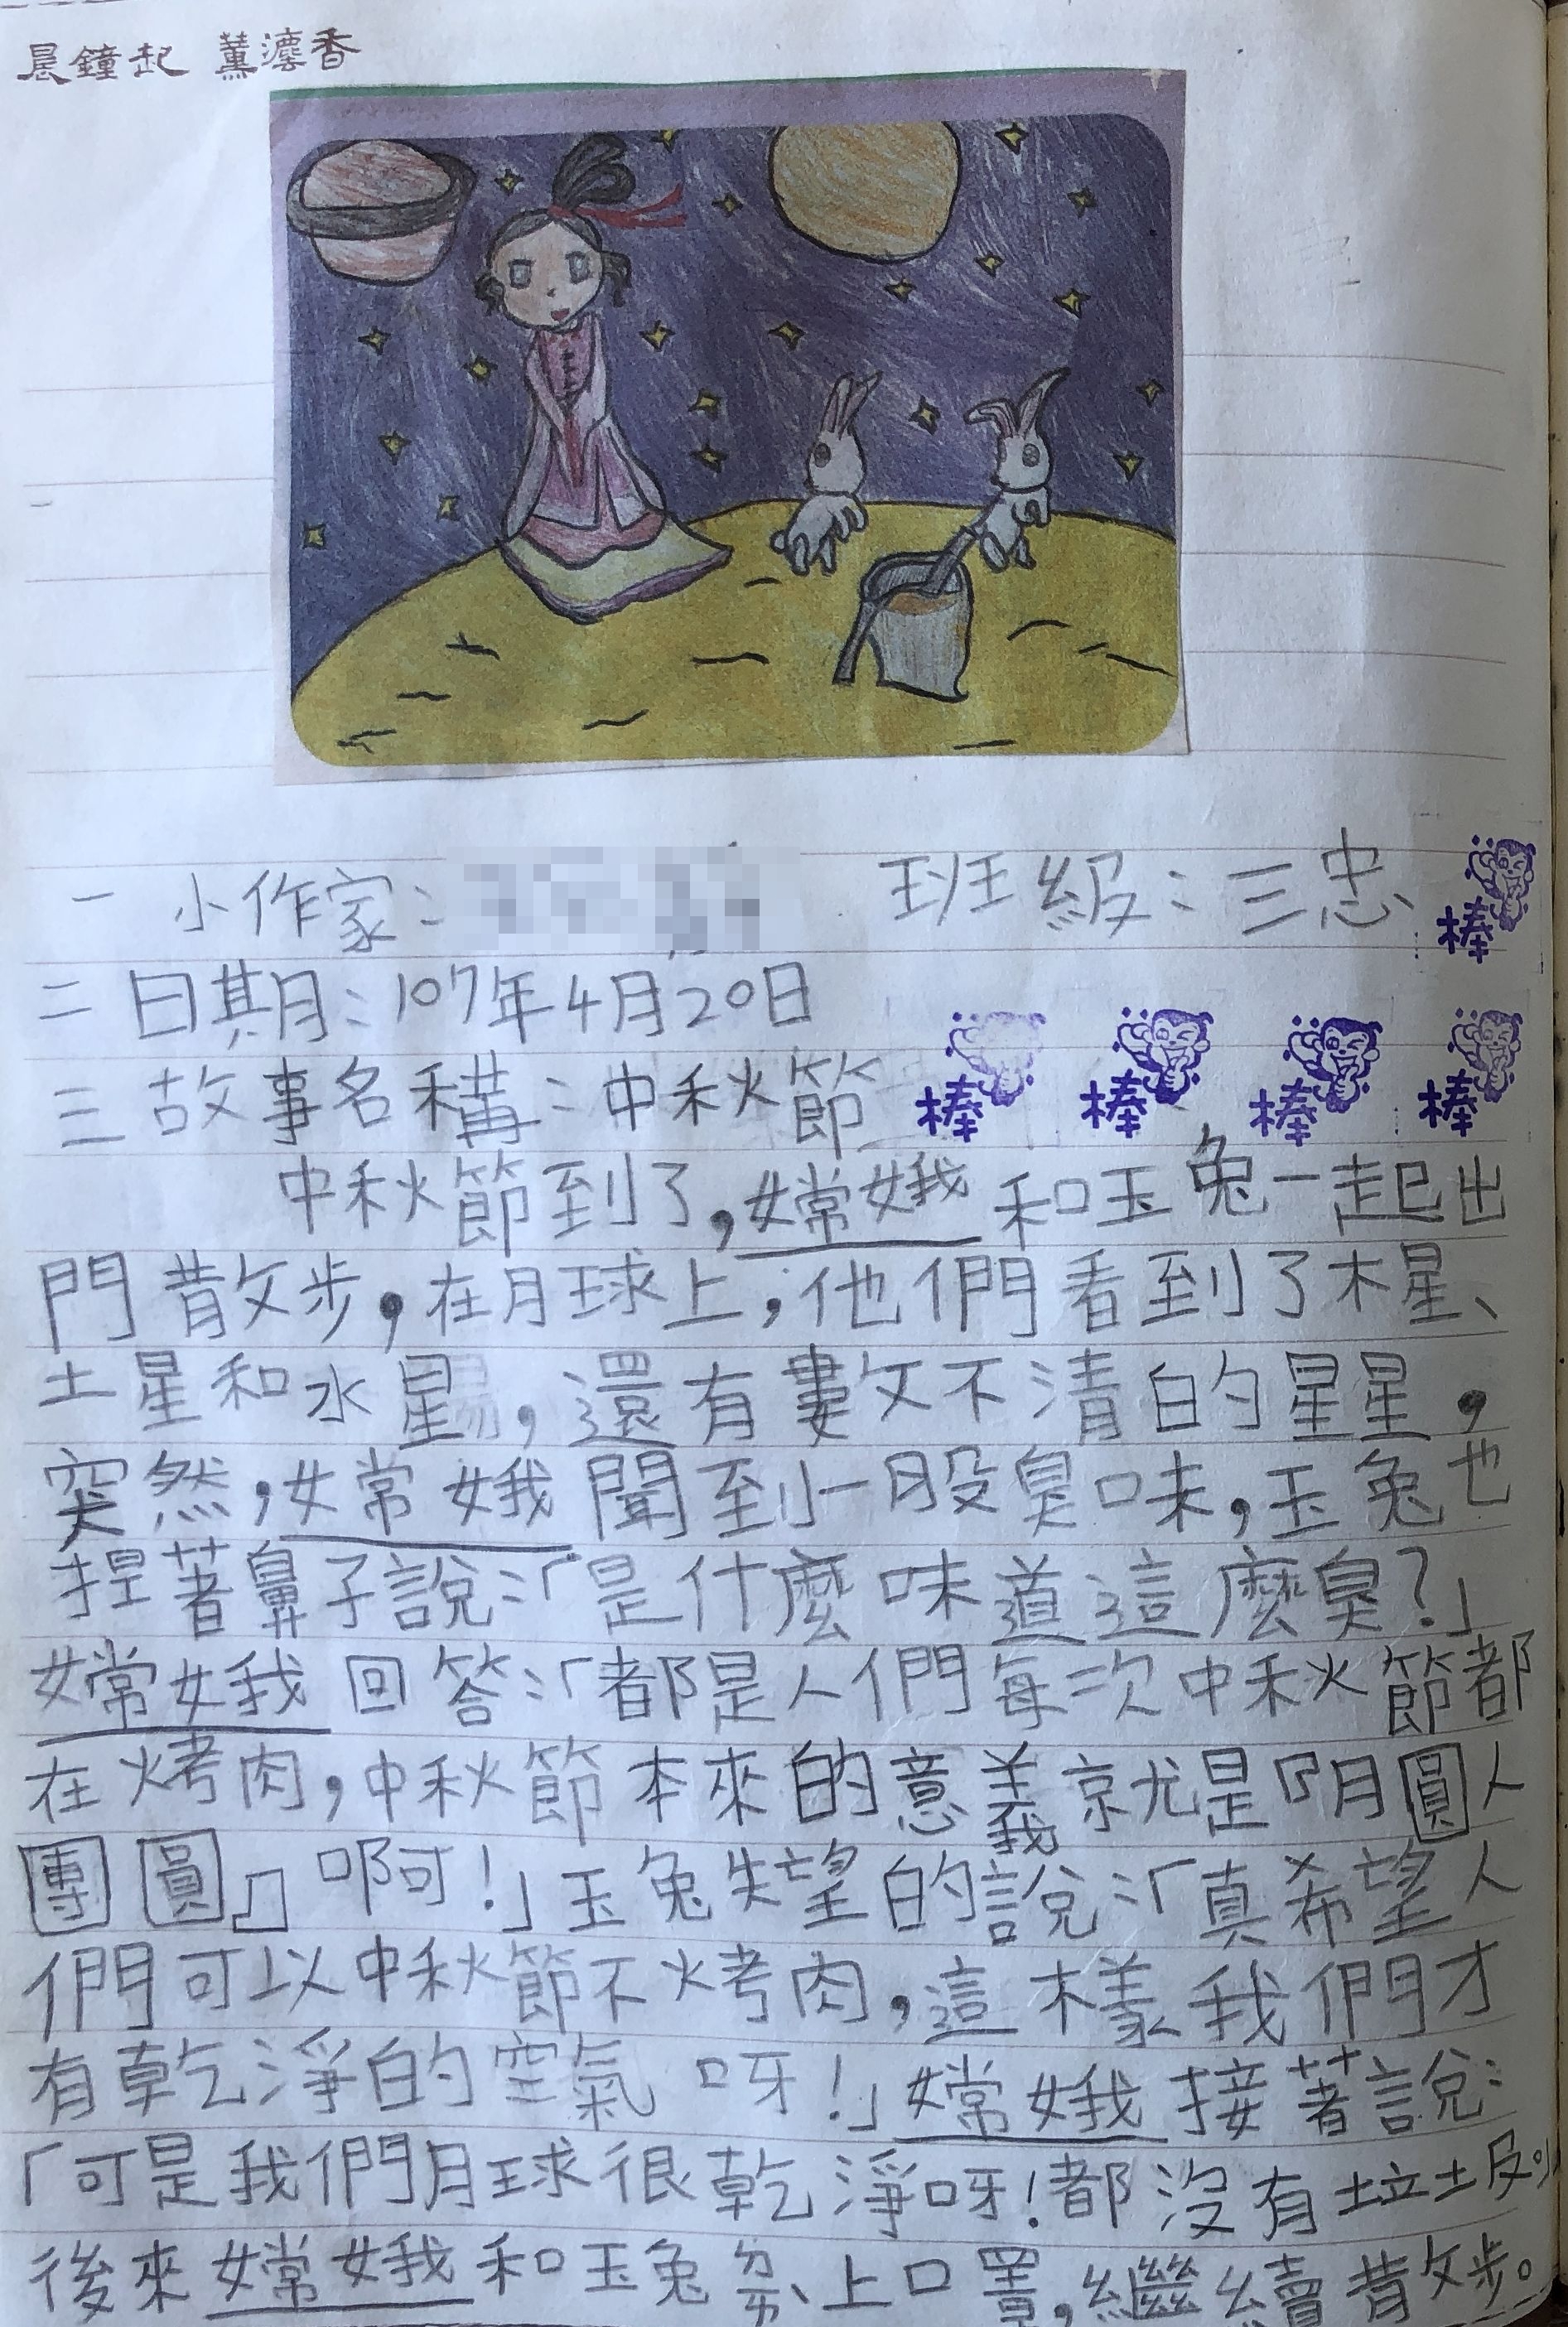 晨鐘起 薰瀍香
一 小作家： 班級：三忠
棒
二 日期：107年4月20日
三 故事名稱：中秋節
棒 棒 棒 棒
中秋節到了，嫦娥和玉兔一起出
門散步，在月球上，他們看到了木星、
土星和水星，還有數不清的星星，
突然，嫦娥聞到一股臭味，玉兔也
捏著鼻子說：「是什麼味道這麼臭？」
嫦娥回答：「都是人們每次中秋節都
在烤肉，中秋節本來的意義就是『月圓人
團圓』啊！」玉兔失望的說：「真希望人
們可以中秋節不烤肉，這樣我們才
有乾淨的空氣呀！」嫦娥接著說：
「可是我們月球很乾淨呀！都沒有垃圾。」
後來嫦娥和玉兔 上口罩，繼續散步。